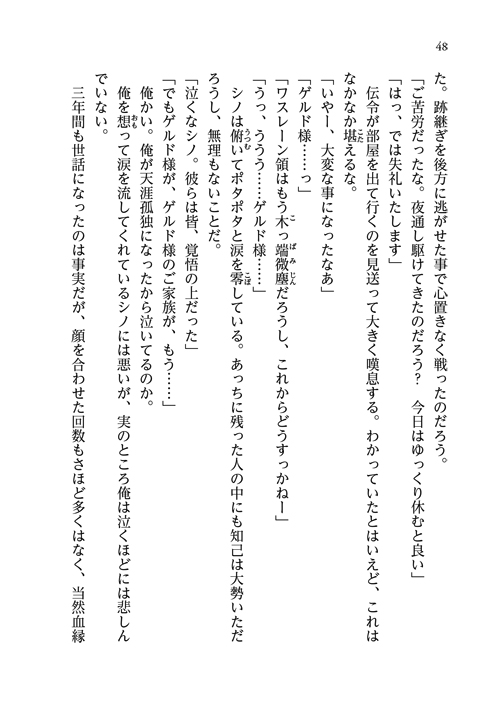 48
た。跡継ぎを後方に逃がせた事で心置きなく戦ったのだろう。
「ご苦労だったな。夜通し駆けてきたのだろう？　今日はゆっくり休むと良い」
「はっ、では失礼いたします」
　伝令が部屋を出て行くのを見送って大きく嘆息する。わかっていたとはいえど、これは
なかなか堪えるな。
「いやー、大変な事になったなあ」
「ゲルド様……っ」
「ワスレーン領はもう木っ端微塵だろうし、これからどうすっかねー」
「うっ、ううう……ゲルド様……」
　シノは俯いてポタポタと涙を零している。あっちに残った人の中にも知己は大勢いただ
ろうし、無理もないことだ。
「泣くなシノ。彼らは皆、覚悟の上だった」
「でもゲルド様が、ゲルド様のご家族が、もう……」
　俺かい。俺が天涯孤独になったから泣いてるのか。
　俺を想って涙を流してくれているシノには悪いが、実のところ俺は泣くほどには悲しん
でいない。
　三年間も世話になったのは事実だが、顔を合わせた回数もさほど多くはなく、当然血縁